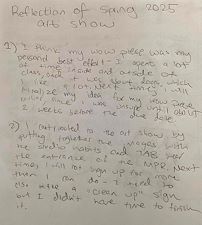 Reflection of Spring 2025
art show
1) I think my wow piece was my
personal best effort - I spent a lot
of time inside and outside of
class and
a lot. Next time, I will
finalize my idea for my wow piece
I was unsure
2 weeks before the due date
2) I contributed to the art show by
putting together the images with
the studio habits and TAB near
the entrance of the MPR. Next
time, I will not sign up for more
than I can do - I tried to
a "clean up" sign
but I didn't have time to finish
it.